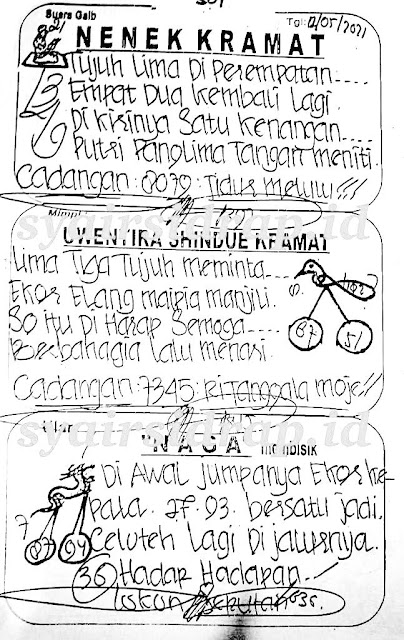 Suara Gaib
Tgl: 12/05/2021
NENEK KRAMAT
Tujuh Lima Di Perempatan....
Empat Dua Kembali Lagi.
Di Kirinya Satu Kenangan....
Putri Panglima Tangan meniti.
Cadangan: 8079: Tidur melulu!!!
syairsidrap.id
Mimpi
UWENTIKA SHINDUE KRAMAT
Lima Tiga Tujuh meminta....
Ekor Elang
So itu Di Harap Semoga....
Berbahagia Lalu menari.
87
51
Cadangan: 7345:
syairsidrap.id
"NAGA
Di Awal Jumpanya Ekor Ke-
pala. 27. 93. bersatu jadi.
7
87
94
Celoteh Lagi Di jalurnya.
36 Hadap Hadapan